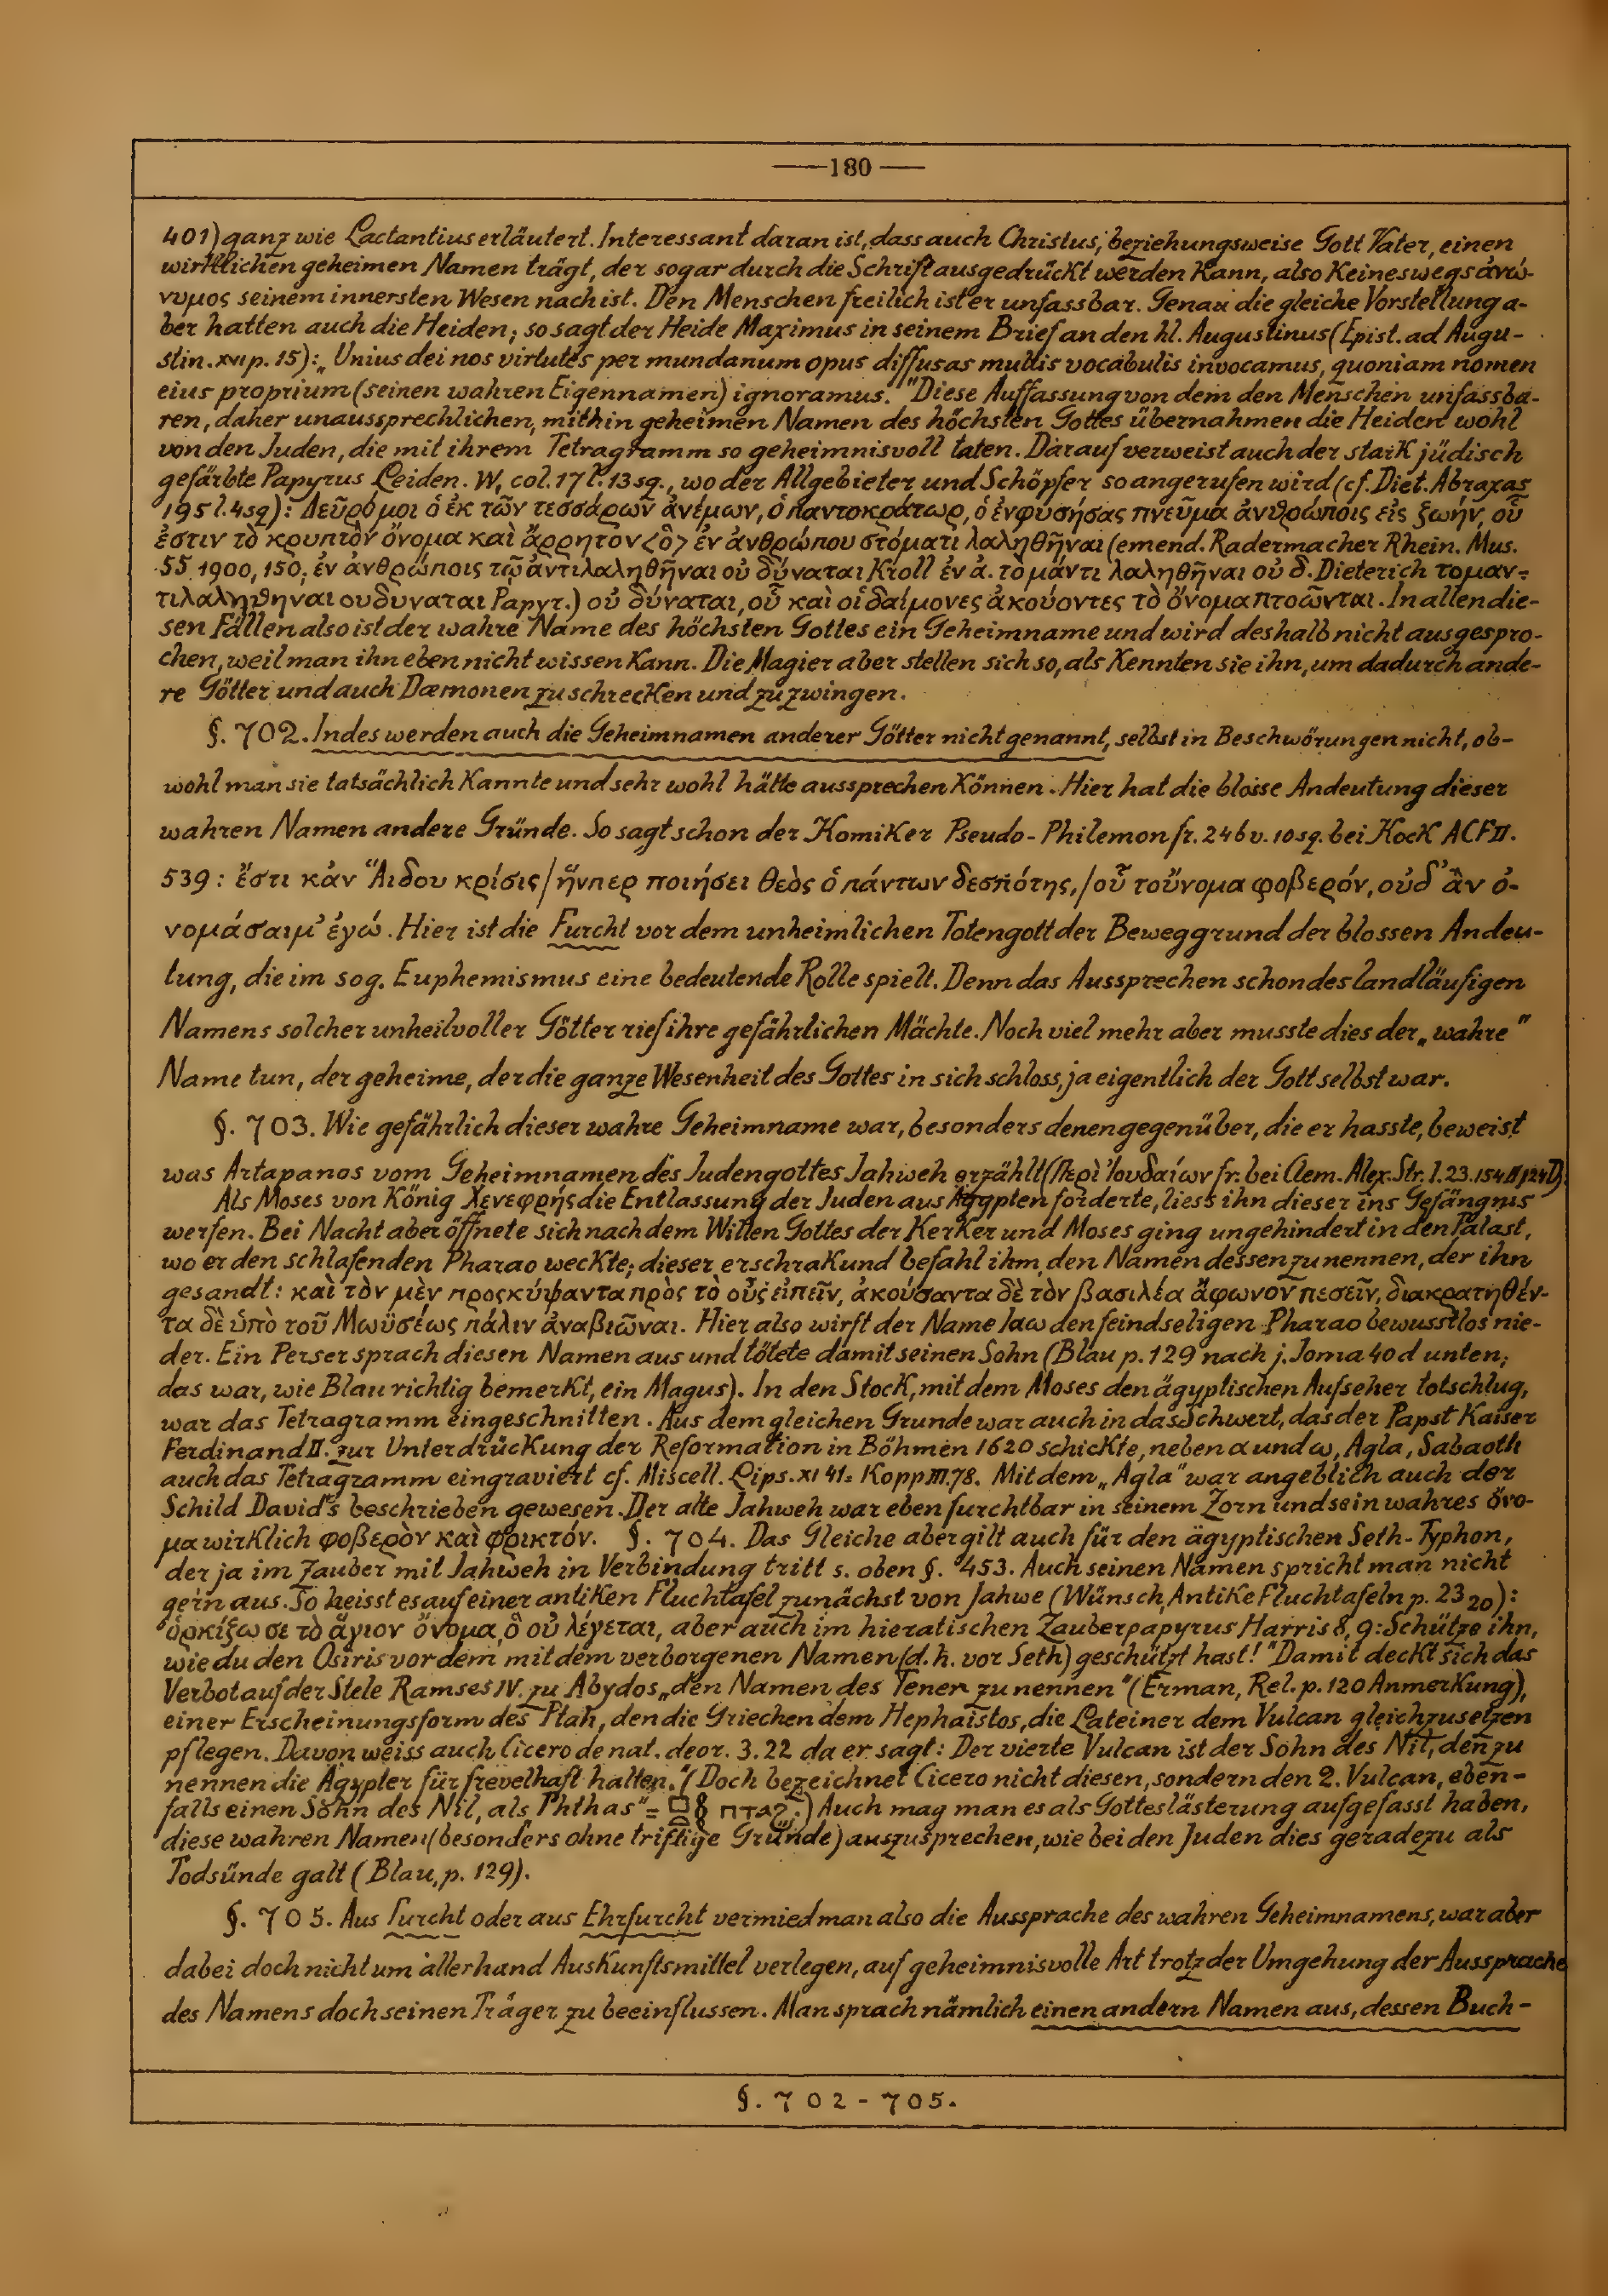 —180—
401) ganz wie Lactantius erläutert. Interessant daran ist, dass auch Christus, beziehungsweise Gott Vater, einen
wirklichen geheimen Namen trägt, der sogar durch die Schrift ausgedrückt werden kann, also keineswegs ἀνώ-
νυμος seinem innersten Wesen nach ist. Den Menschen freilich ist er unfassbar. Genau die gleiche Vorstellung a-
ber hatten auch die Heiden; so sagt der Heide Maximus in seinem Brief an den hl. Augustinus (Epist. ad Augu-
stin. XVI p. 15): „Unius dei nos virtutes per mundanum opus diffusas multis vocabulis invocamus, quoniam nomen
eius proprium (seinen wahren Eigennamen) ignoramus." Diese Auffassung von dem den Menschen unfassba-
ren, daher unaussprechlichen, mithin geheimen Namen des höchsten Gottes übernahmen die Heiden wohl
von den Juden, die mit ihrem Tetragramm so geheimnisvoll taten. Darauf verweist auch der stark jüdisch
gefärbte Papyrus Leiden. W, col. 17 l. 13 sq., wo der Allgebieter und Schöpfer so angerufen wird (cf. Diet. Abraxas
195 l. 4 sq): Δεῦρό μοι ὁ ἐκ τῶν τεσσάρων ἀνέμων, ὁ παντοκράτωρ, ὁ ἐνφυσήσας πνεῦμα ἀνθρώποις εἰς ζωήν, οὗ
ἐστιν τὸ κρυπτὸν ὄνομα καὶ ἄρρητον <ὃ> ἐν ἀνθρώπου στόματι λαληθῆναι (emend. Radermacher Rhein. Mus.
55 1900, 150; ἐν ἀνθρώποις τῷ ἀντιλαληθῆναι οὐ δύναται Kroll ἐν ἀ. τὸ μάντι λαληθῆναι οὐ δ. Dieterich τομαν-
τιλαληθηναι ουδυναται Papyr.) οὐ δύναται, οὗ καὶ οἱ δαίμονες ἀκούοντες τὸ ὄνομα πτοῶνται. In allen die-
sen Fällen also ist der wahre Name des höchsten Gottes ein Geheimname und wird deshalb nicht ausgespro-
chen, weil man ihn eben nicht wissen kann. Die Magier aber stellen sich so, als kennten sie ihn, um dadurch ande-
re Götter und auch Dæmonen zu schrecken und zu zwingen.
§. 702. Indes werden auch die Geheimnamen anderer Götter nicht genannt, selbst in Beschwörungen nicht, ob-
wohl man sie tatsächlich kannte und sehr wohl hätte aussprechen können. Hier hat die blosse Andeutung dieser
wahren Namen andere Gründe. So sagt schon der Komiker Pseudo-Philemon fr. 246 v. 10 sq. bei Kock ACF II.
539: ἔστι κἀν Ἅιδου κρίσις / ἥνπερ ποιήσει θεὸς ὁ πάντων δεσπότης, / οὗ τοὔνομα φοβερόν, οὐδ' ἂν ὀ-
νομάσαιμ' ἐγώ. Hier ist die Furcht vor dem unheimlichen Totengott der Beweggrund der blossen Andeu-
tung, die im sog. Euphemismus eine bedeutende Rolle spielt. Denn das Aussprechen schon des landläufigen
Namens solcher unheilvoller Götter rief ihre gefährlichen Mächte. Noch viel mehr aber musste dies der „wahre"
Name tun, der geheime, der die ganze Wesenheit des Gottes in sich schloss, ja eigentlich der Gott selbst war.
§. 703. Wie gefährlich dieser wahre Geheimname war, besonders denen gegenüber, die er hasste, beweist
was Artapanos vom Geheimnamen des Judengottes Jahweh erzählt (Περὶ Ἰουδαίων fr. bei Clem. Alex. Str. I. 23. 154 II p 124 D):
Als Moses von König Χενεφρής die Entlassung der Juden aus Ägypten forderte, liess ihn dieser ins Gefängnis
werfen. Bei Nacht aber öffnete sich nach dem Willen Gottes der Kerker und Moses ging ungehindert in den Palast,
wo er den schlafenden Pharao weckte; dieser erschrak und befahl ihm, den Namen dessen zu nennen, der ihn
gesandt: καὶ τὸν μὲν προςκύψαντα πρὸς τὸ οὖς εἰπεῖν, ἀκούσαντα δὲ τὸν βασιλέα ἄφωνον πεσεῖν, διακρατηθέν-
τα δὲ ὑπὸ τοῦ Μωϋσέως πάλιν ἀναβιῶναι. Hier also wirft der Name Ιαω den feindseligen Pharao bewusstlos nie-
der. Ein Perser sprach diesen Namen aus und tötete damit seinen Sohn (Blau p. 129 nach j. Joma 40 d unten;
das war, wie Blau richtig bemerkt, ein Magus). In den Stock, mit dem Moses den ägyptischen Aufseher totschlug,
war das Tetragramm eingeschnitten. Aus dem gleichen Grunde war auch in das Schwert, das der Papst Kaiser
Ferdinand II. zur Unterdrückung der Reformation in Böhmen 1620 schickte, neben α und ω, Agla, Sabaoth
auch das Tetragramm eingraviert cf. Miscell. Lips. XI 41 = Kopp III. 78. Mit dem „Agla" war angeblich auch der
Schild David's beschrieben gewesen. Der alte Jahweh war eben furchtbar in seinem Zorn und sein wahres ὄνο-
μα wirklich φοβερὸν καὶ φρικτόν. §. 704. Das Gleiche aber gilt auch für den ägyptischen Seth-Typhon,
der ja im Zauber mit Jahweh in Verbindung tritt s. oben §. 453. Auch seinen Namen spricht man nicht
gern aus. So heisst es auf einer antiken Fluchtafel zunächst von Jahwe (Wünsch, Antike Fluchtafeln p. 23 20):
ὁρκίζω σε τὸ ἅγιον ὄνομα, ὃ οὐ λέγεται, aber auch im hieratischen Zauberpapyrus Harris 8, 9: Schütze ihn,
wie du den Osiris vor dem mit dem verborgenen Namen (d. h. vor Seth) geschützt hast!" Damit deckt sich das
Verbot auf der Stele Ramses IV. zu Abydos „den Namen des Tenen zu nennen" (Erman, Rel. p. 120 Anmerkung),
einer Erscheinungsform des Ptah, den die Griechen dem Hephaistos, die Lateiner dem Vulcan gleichzusetzen
pflegen. Davon weiss auch Cicero de nat. deor. 3. 22 da er sagt: Der vierte Vulcan ist der Sohn des Nil, den zu
nennen die Ägypter für frevelhaft halten." (Doch bezeichnet Cicero nicht diesen, sondern den 2. Vulcan, eben-
falls einen Sohn des Nil, als Phthas" = πταϩ.) Auch mag man es als Gotteslästerung aufgefasst haben,
diese wahren Namen (besonders ohne triftige Gründe) auszusprechen, wie bei den Juden dies geradezu als
Todsünde galt (Blau, p. 129).
§. 705. Aus Furcht oder aus Ehrfurcht vermied man also die Aussprache des wahren Geheimnamens, war aber
dabei doch nicht um allerhand Auskunftsmittel verlegen, auf geheimnisvolle Art trotz der Umgehung der Aussprache
des Namens doch seinen Träger zu beeinflussen. Man sprach nämlich einen andern Namen aus, dessen Buch-
§. 702-705.